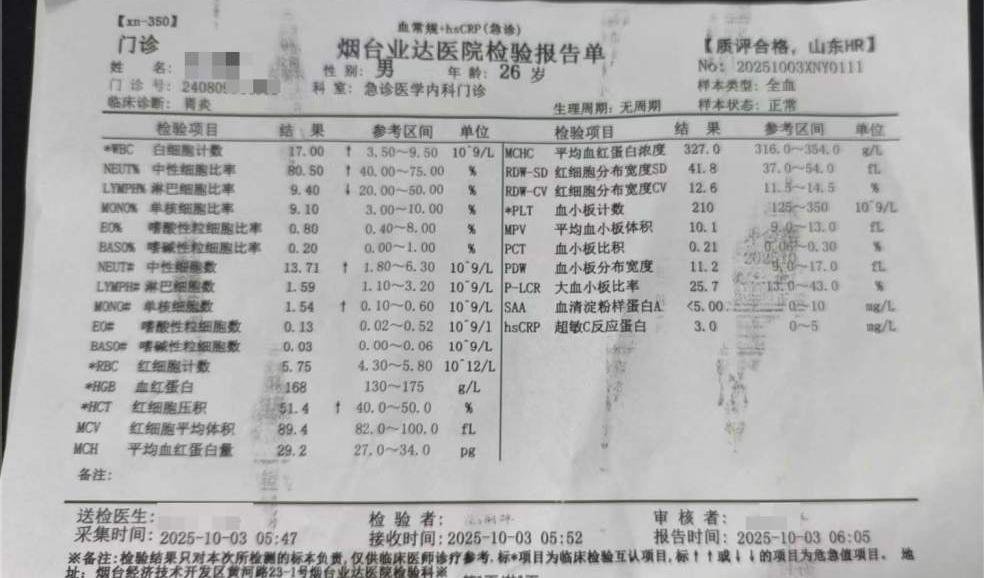 【xn-350】
血常规+hsCRP(急诊)
门诊
烟台业达医院检验报告单
【质评合格，山东HR】
姓 名:
性 别: 男 年 龄: 26 岁
No: 20251003XNY0111
门 诊 号: 24080
科 室: 急诊医学内科门诊
样本类型: 全血
临床诊断: 胃炎
生理周期: 无周期
样本状态: 正常
检验项目 结 果 参考区间 单位 检验项目 结 果 参考区间 单位
*WBC 白细胞计数 17.00 ↑ 3.50~9.50 10^9/L MCHC 平均血红蛋白浓度 327.0 316.0~354.0 g/L
NEUT% 中性细胞比率 80.50 ↑ 40.00~75.00 % RDW-SD 红细胞分布宽度SD 41.8 37.0~54.0 fL
LYMPH% 淋巴细胞比率 9.40 ↓ 20.00~50.00 % RDW-CV 红细胞分布宽度CV 12.6 11.5~14.5 %
MONO% 单核细胞比率 9.10 3.00~10.00 % *PLT 血小板计数 210 125~350 10^9/L
EO% 嗜酸性粒细胞比率 0.80 0.40~8.00 % MPV 平均血小板体积 10.1 9.0~13.0 fL
BASO% 嗜碱性粒细胞比率 0.20 0.00~1.00 % PCT 血小板比积 0.21 0.06~0.30 %
NEUT# 中性细胞数 13.71 ↑ 1.80~6.30 10^9/L PDW 血小板分布宽度 11.2 9.0~17.0 fL
LYMPH# 淋巴细胞数 1.59 1.10~3.20 10^9/L P-LCR 大血小板比率 25.7 13.0~43.0 %
MONO# 单核细胞数 1.54 ↑ 0.10~0.60 10^9/L SAA 血清淀粉样蛋白A <5.00 0~10 mg/L
EO# 嗜酸性粒细胞数 0.13 0.02~0.52 10^9/l hsCRP 超敏C反应蛋白 3.0 0~5 mg/L
BASO# 嗜碱性粒细胞数 0.03 0.00~0.06 10^9/L
*RBC 红细胞计数 5.75 4.30~5.80 10^12/L
*HGB 血红蛋白 168 130~175 g/L
*HCT 红细胞压积 51.4 ↑ 40.0~50.0 %
MCV 红细胞平均体积 89.4 82.0~100.0 fL
MCH 平均血红蛋白量 29.2 27.0~34.0 pg
备注:
送检医生: 检 验 者: 审 核 者:
采集时间: 2025-10-03 05:47 接收时间: 2025-10-03 05:52 报告时间: 2025-10-03 06:05
※备注:检验结果只对本次所检测的标本负责,仅供临床医师诊疗参考.标*项目为临床检验互认项目,标↑↑或↓↓的项目为危急值项目。 地
址: 烟台经济技术开发区黄河路23-1号烟台业达医院检验科※